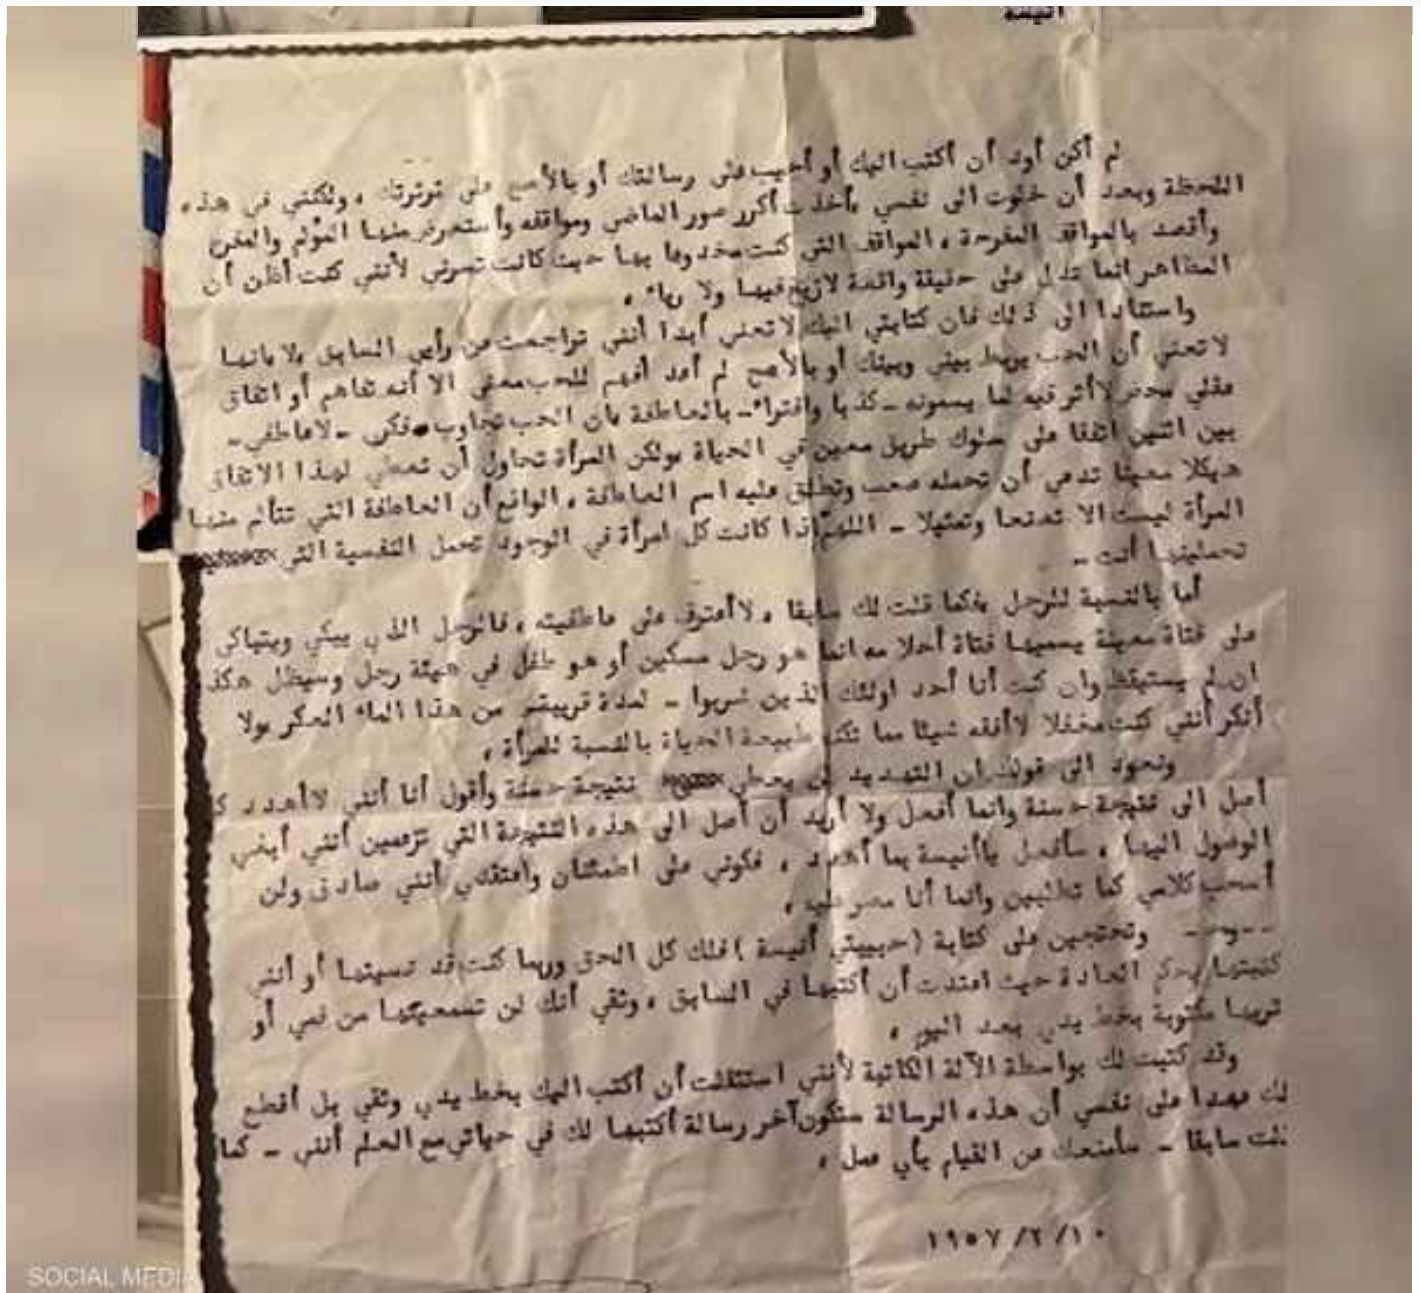 أنيسة
لم أكن أود أن أكتب اليك أو أجيب على رسالتك أو بالأصح على ثرثرتك ، ولكنني في هذه
اللحظة وبعد أن خلوت الى نفسي وأخذت أكرر صور الماضي ومواقفه وأستعرض منها المؤلم والمفرح
وأقصد بالمواقف المفرحة ، المواقف التي كنت مخدوعا بها حيث كانت تسرني لأنني كنت أظن أن
المظاهر انما تدل على حقيقة واقعة لا زيغ فيها ولا رياء .
واستنادا الى ذلك فان كتابتي اليك لا تعني أبدا أنني تراجعت عن رأيي السابق ولا بانها
لا تعني أن الحب يربط بيني وبينك أو بالأصح لم أعد أفهم للحب معنى الا أنه تفاهم أو اتفاق
عقلي محض لا أثر فيه لما يسمونه - كذبا وافتراء - بالعاطفة فان الحب تجاوب فكري - لا عاطفي -
بين اثنين اتفقا على سلوك طريق معين في الحياة ولكن المرأة تحاول أن تعطي لهذا الاتفاق
هيكلا معينا تدعي أن تحمله صعب وتطلق عليه اسم العاطفة ، الواقع أن العاطفة التي تتألم منها
المرأة ليست الا تصنعا وتمثيلا - اللهم اذا كانت كل امرأة في الوجود تحمل النفسية التي
تحملينها أنت -
أما بالنسبة للرجل فكما قلت لك سابقا ، لا أعترف على عاطفيته ، فالرجل الذي يبكي ويتباكى
على فتاة معينة يسميها فتاة أحلامه انما هو رجل مسكين أو هو طفل في هيئة رجل وسيظل هكذ
ان لم يستيقظ وان كنت أنا أحد اولئك الذين شربوا - لمدة قريبة - من هذا الماء العكر ولا
أنكر أنني كنت مغفلا لا أفقه شيئا مما تكنه طبيعة الحياة بالنسبة للمرأة ،
ونعود الى قولك ان التهديد لن يعطي نتيجة حسنة وأقول أنا أنني لا أهدد كي
أصل الى نتيجة حسنة وانما أفعل ولا أريد أن أصل الى هذه النتيجة التي تزعمين أنني أبغي
الوصول اليها ، سأفعل يا أنيسة بما أهدد ، فكوني على اطمئنان وأعتقدي أنني صادق ولن
أسحب كلامي كما تطلبين وانما أنا مصر عليه ،
وتحتجين على كتابة ( حبيبتي أنيسة ) فلك كل الحق وربما كنت قد نسيتها أو أنني
كتبتها بحكم العادة حيث اعتدت أن أكتبها في السابق ، وثقي أنك لن تسمعيها من فمي أو
تريها مكتوبة بخط يدي بعد اليوم ،
وقد كتبت لك بواسطة الآلة الكاتبة لأنني استثقلت أن أكتب اليك بخط يدي وثقي بل أقطع
لك عهدا على نفسي أن هذه الرسالة ستكون آخر رسالة أكتبها لك في حياتي مع العلم أنني - كما
قلت سابقا - سأمنعك عن القيام بأي عمل ،
١٩٥٧/٢/١٠
SOCIAL MEDIA